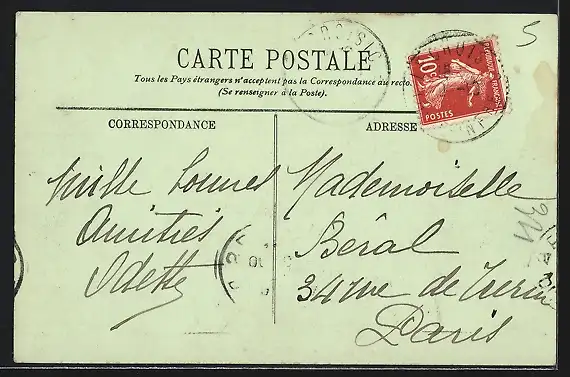 5
CARTE POSTALE
Tous les Pays étrangers n'acceptent pas la Correspondance au recto.
(Se renseigner à la Poste).
CROISIC
10c
POSTES
CORRESPONDANCE
ADRESSE
Mille bonnes
Amitiés
Odette
Mademoiselle
Béral
34 rue de Turin
Paris